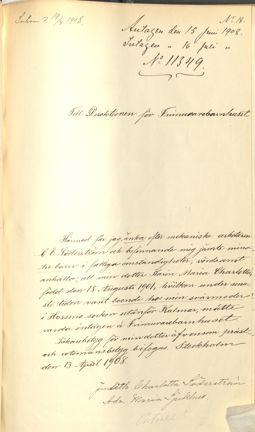 Inkom 2 19/5 1908.
No. 18.
Antagen den 15 Juni 1908.
Intagen " 16 Juli "
No 11349.
Till Direktionen för Frimurarebarnhuset.
Härmed får jag, änka efter mekaniske arbetaren
C E Söderström och befinnande mig jämte mina
barn i fattiga omständigheter, vördsamt
anhålla, att min dotter Karin Maria Charlotta,
född den 18 Augusti 1901, hvilken under senaste
tiden varit boende hos min svärmoder
i socken utanför Kalmar, måtte
varda intagen å Frimurarebarnhuset.
Läkarebetyg för min dotter äfvensom präst
och rotemansbetyg bifogas. Stockholm
den 13 April 1908.
Judith Charlotta Söderström
Maria